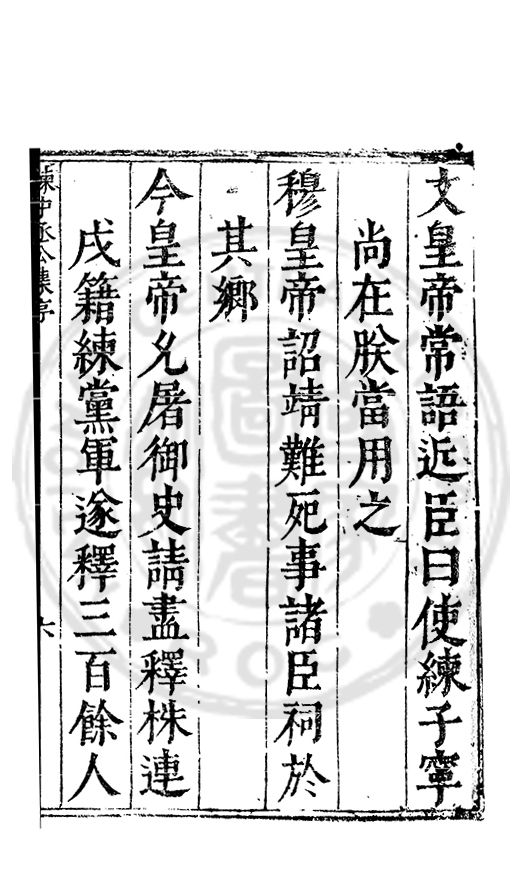 文皇帝常語近臣曰使練子寧
尚在朕當用之
穆皇帝詔靖難死事諸臣祠於
其鄉
今皇帝允屠御史請盡釋株連
戍籍練黨軍遂釋三百餘人
練中丞公集序
六